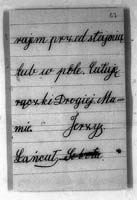 rajem przed stajnią
lub w pole. Całuję
rączki Drogiej Ma-
mie. Jerzy.
Łańcut, Sobota.